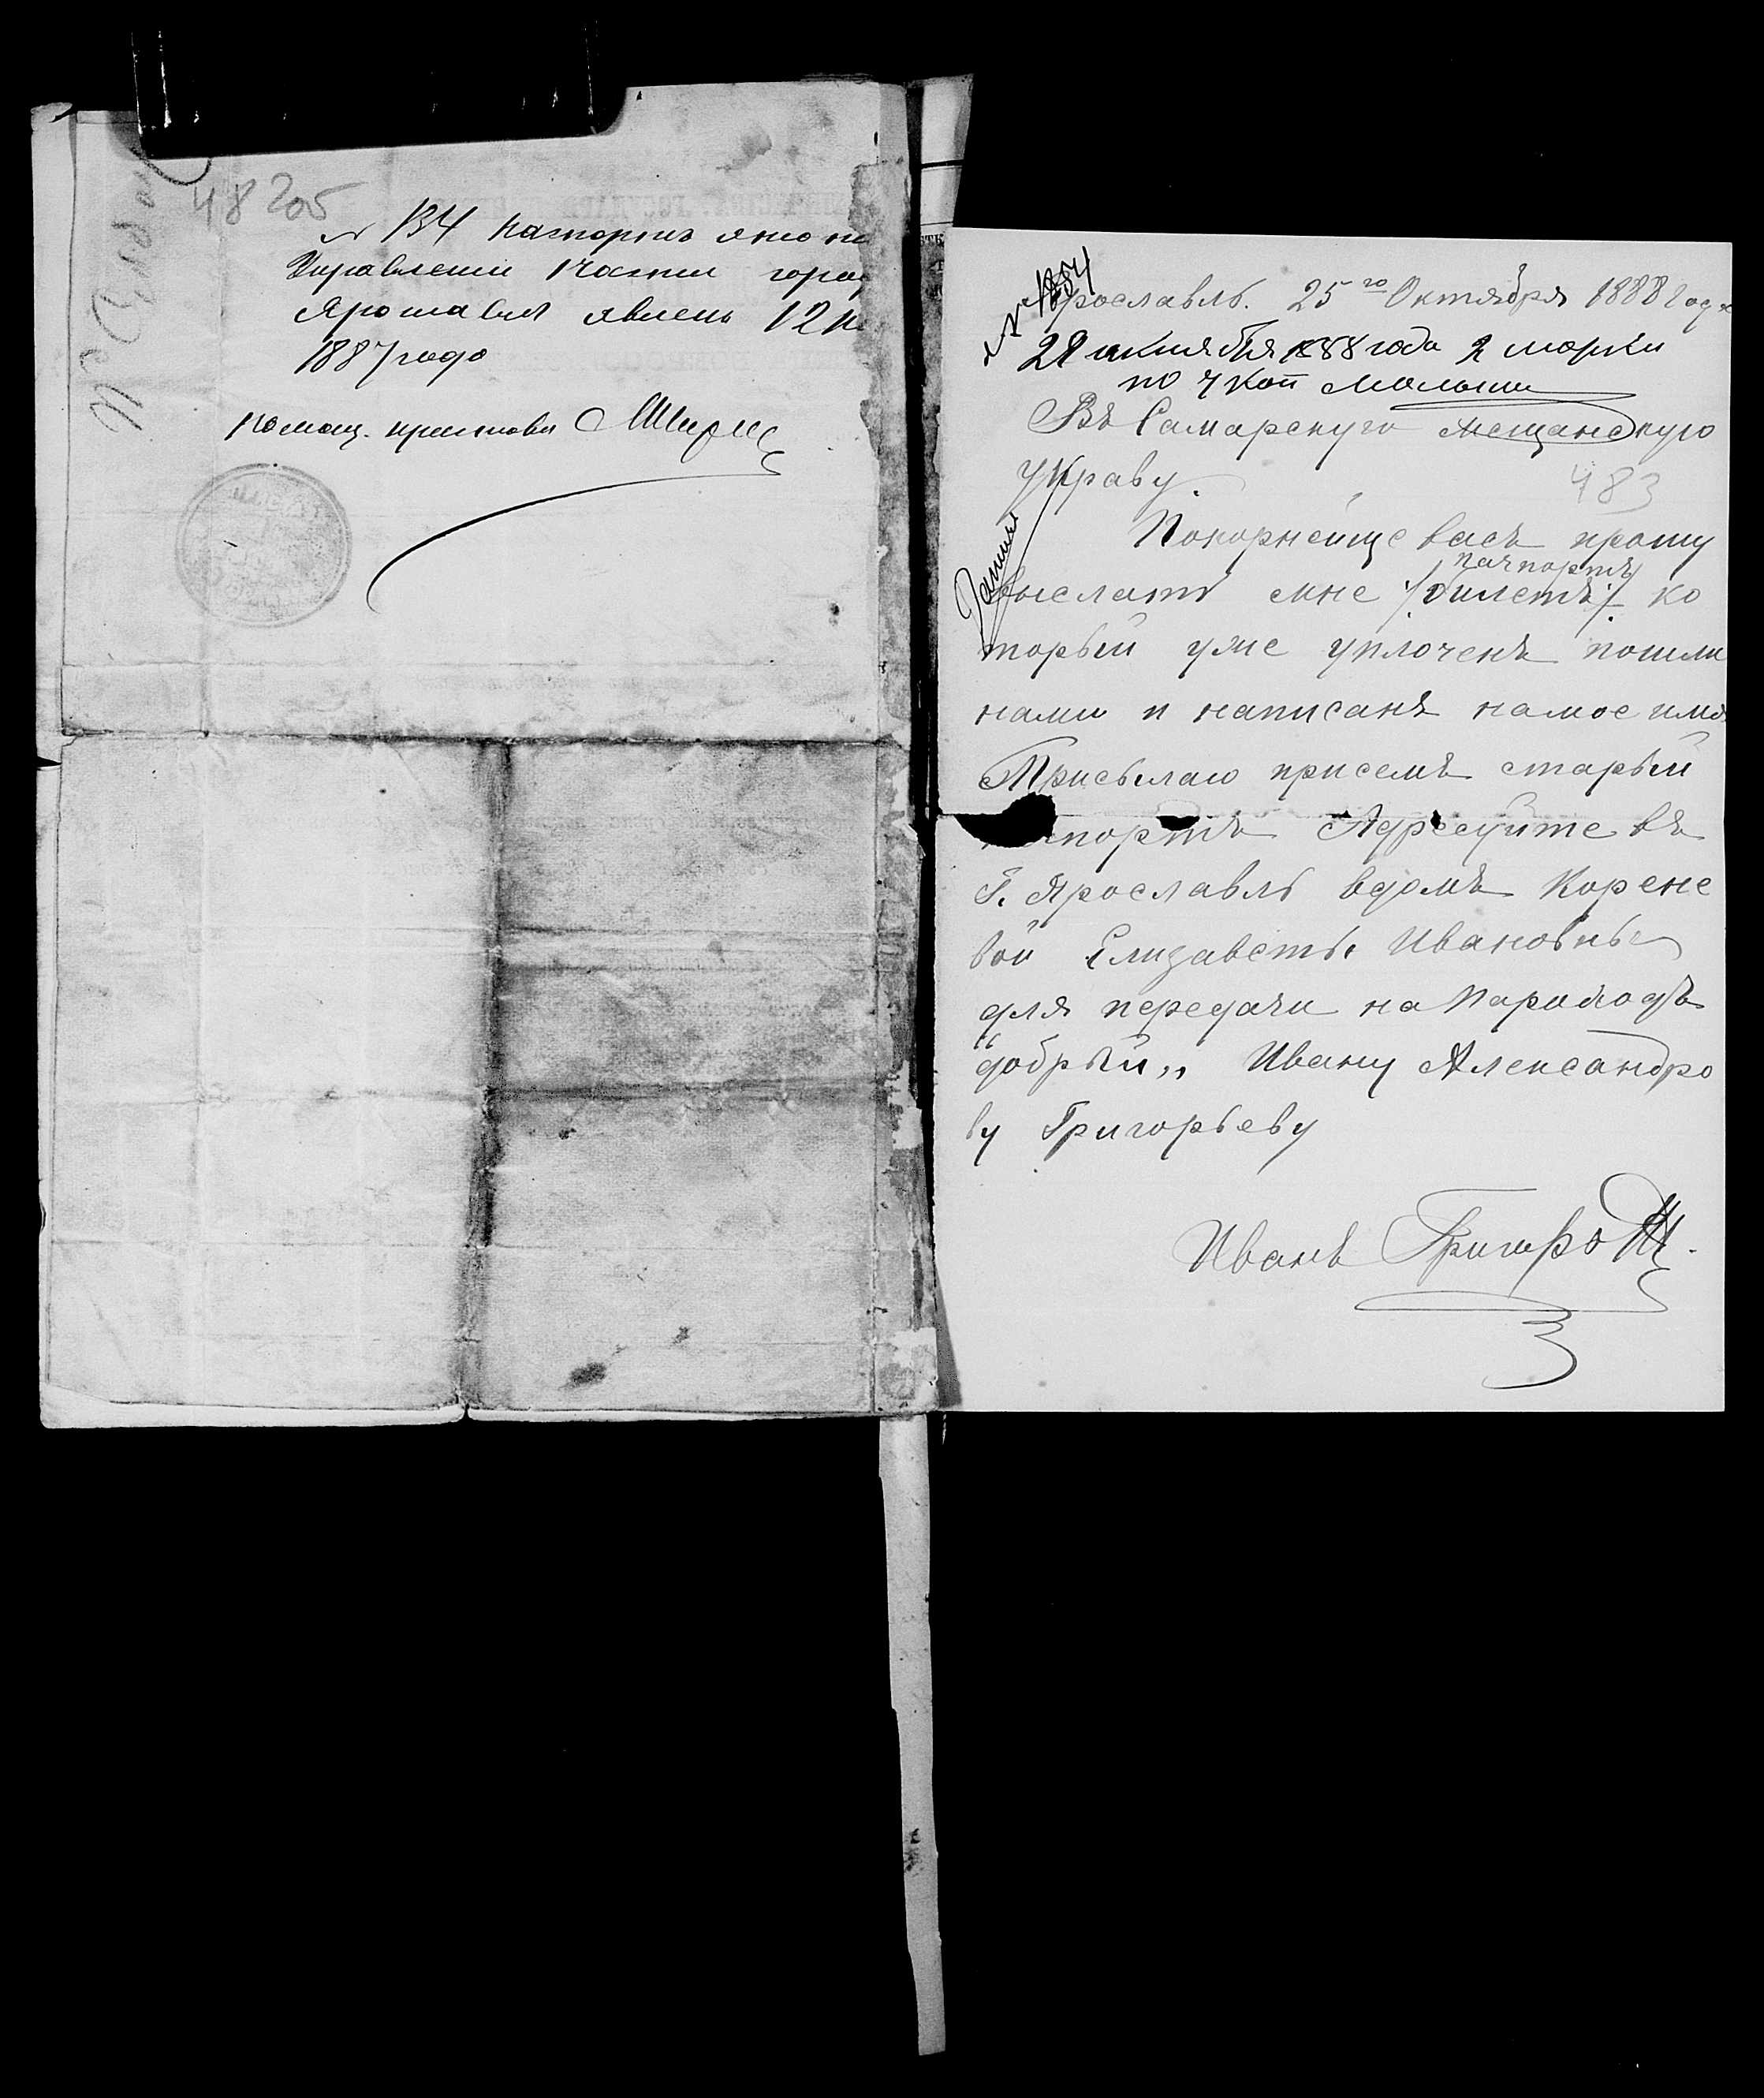 48205
№ 134 паспортъ
Управленіи 1 части горо
Ярославля явленъ 12
1887 года
Помощ. пристава
№ 1854
Ярославль. 25го Октября 1888 года
28 октября 1888 года 2 марки
по 7 коп
Въ Самарскую мещанскую
управу.
483
Покорнейше васъ прошу
пачпортъ
выслать мне /билетъ/ ко
торый уже уплоченъ пошли
нами и написанъ намое имя
Присылаю присемъ старый
спортъ Адресуйте въ
Г. Ярославль вдомъ Корене
вой Елизаветы Ивановны
для передачи на Пароходъ
"добрый„ Ивану Александро
ву Григорьеву
Иванъ